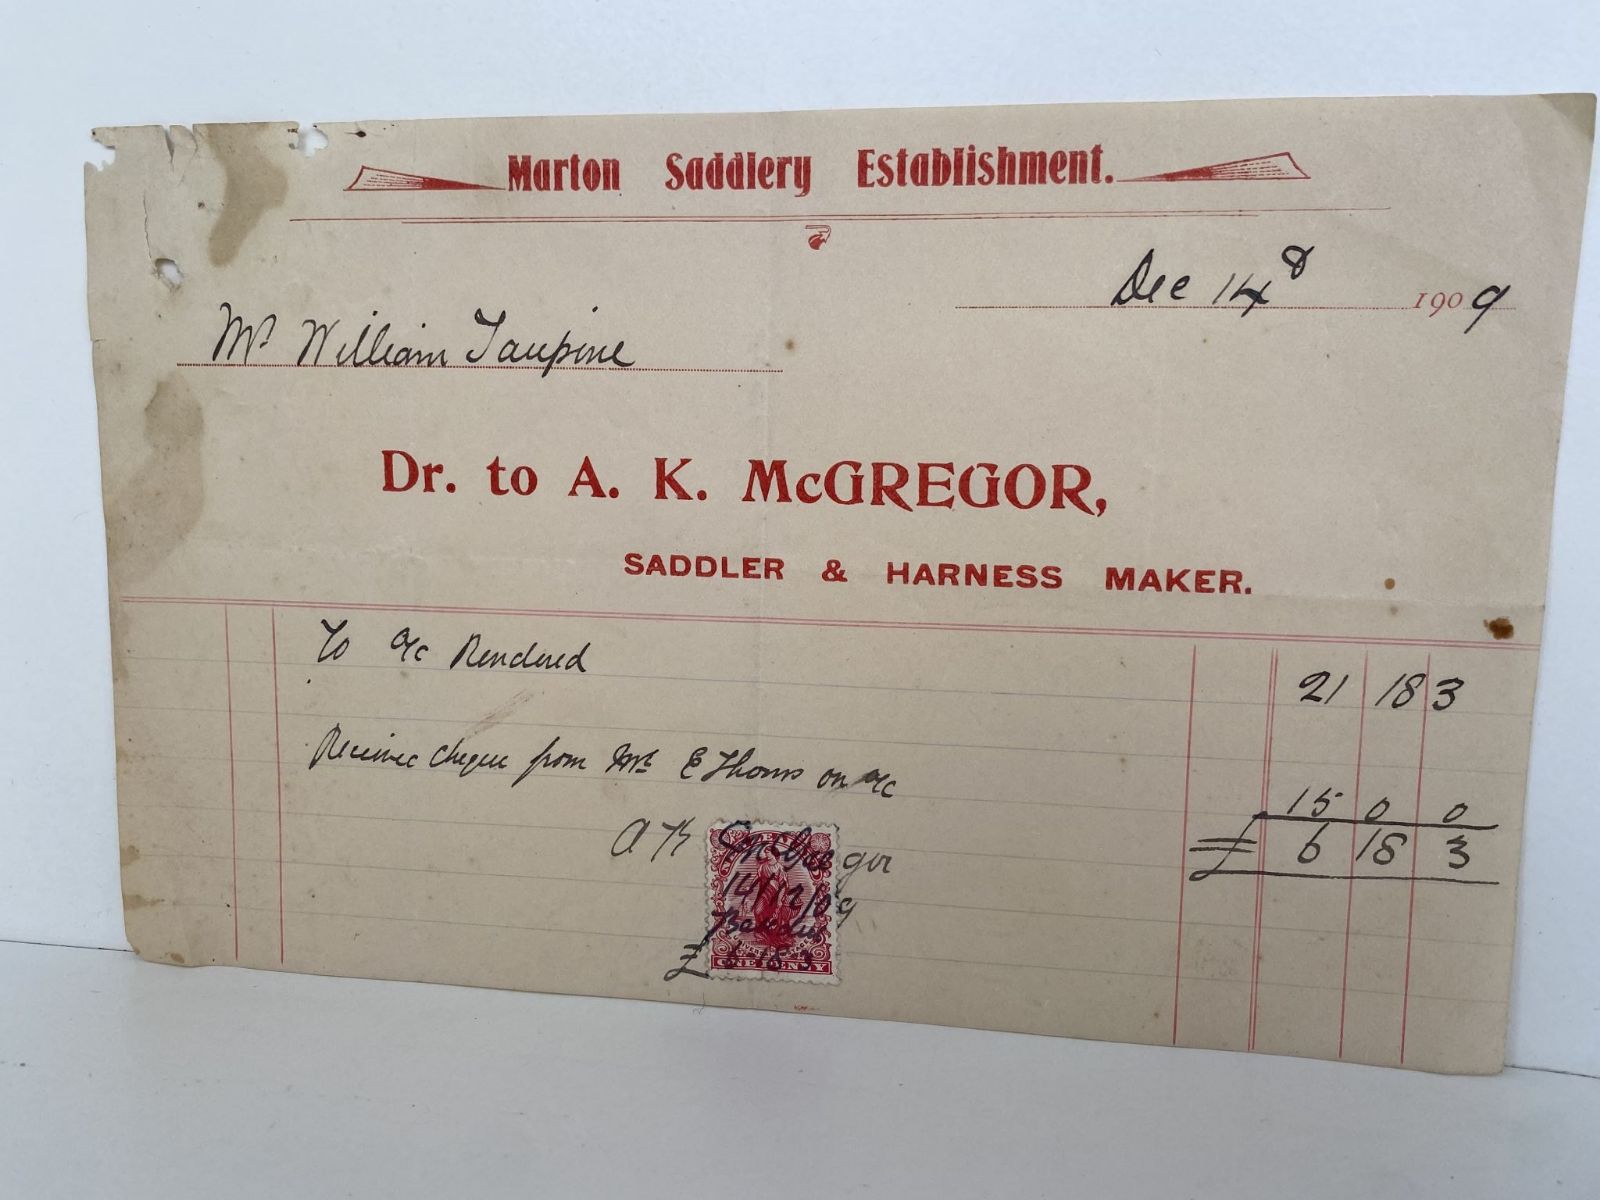 Marton Saddlery Establishment.
Dec 14th 1909
Mr William Taupine
Dr. to A. K. McGREGOR,
SADDLER & HARNESS MAKER.
To a/c Rendered 21 18 3
Received cheque from Mr E Thoms on a/c
15 0 0
A K McGregor
£ 6 18 3
14/12/09
£ 6 18 3
ONE PENNY